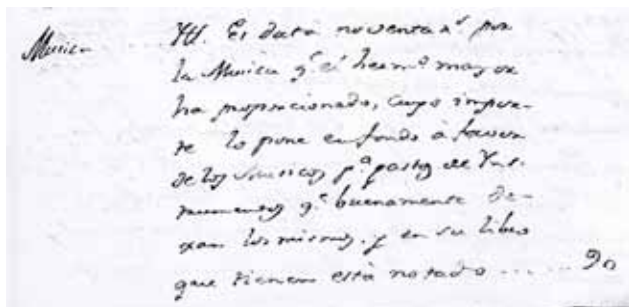 Musica
Ytt. Es data noventa r.s por
la Musica q.e el herm.o mayor
ha proporcionado, cuyo impor-
te lo pone en fondo á favor
de los Musicos p.a gastos de Yns-
trumentos q.e buenamente de-
xan los mismos. y en su libro
que tienen está notado ...... 90